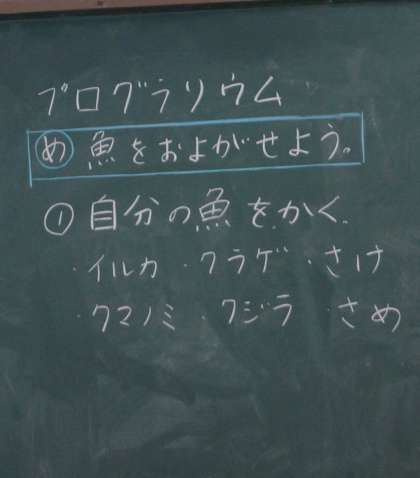 プログラリウム
め 魚をおよがせよう。
① 自分の魚をかく
・イルカ ・クラゲ ・さけ
・クマノミ ・クジラ ・さめ